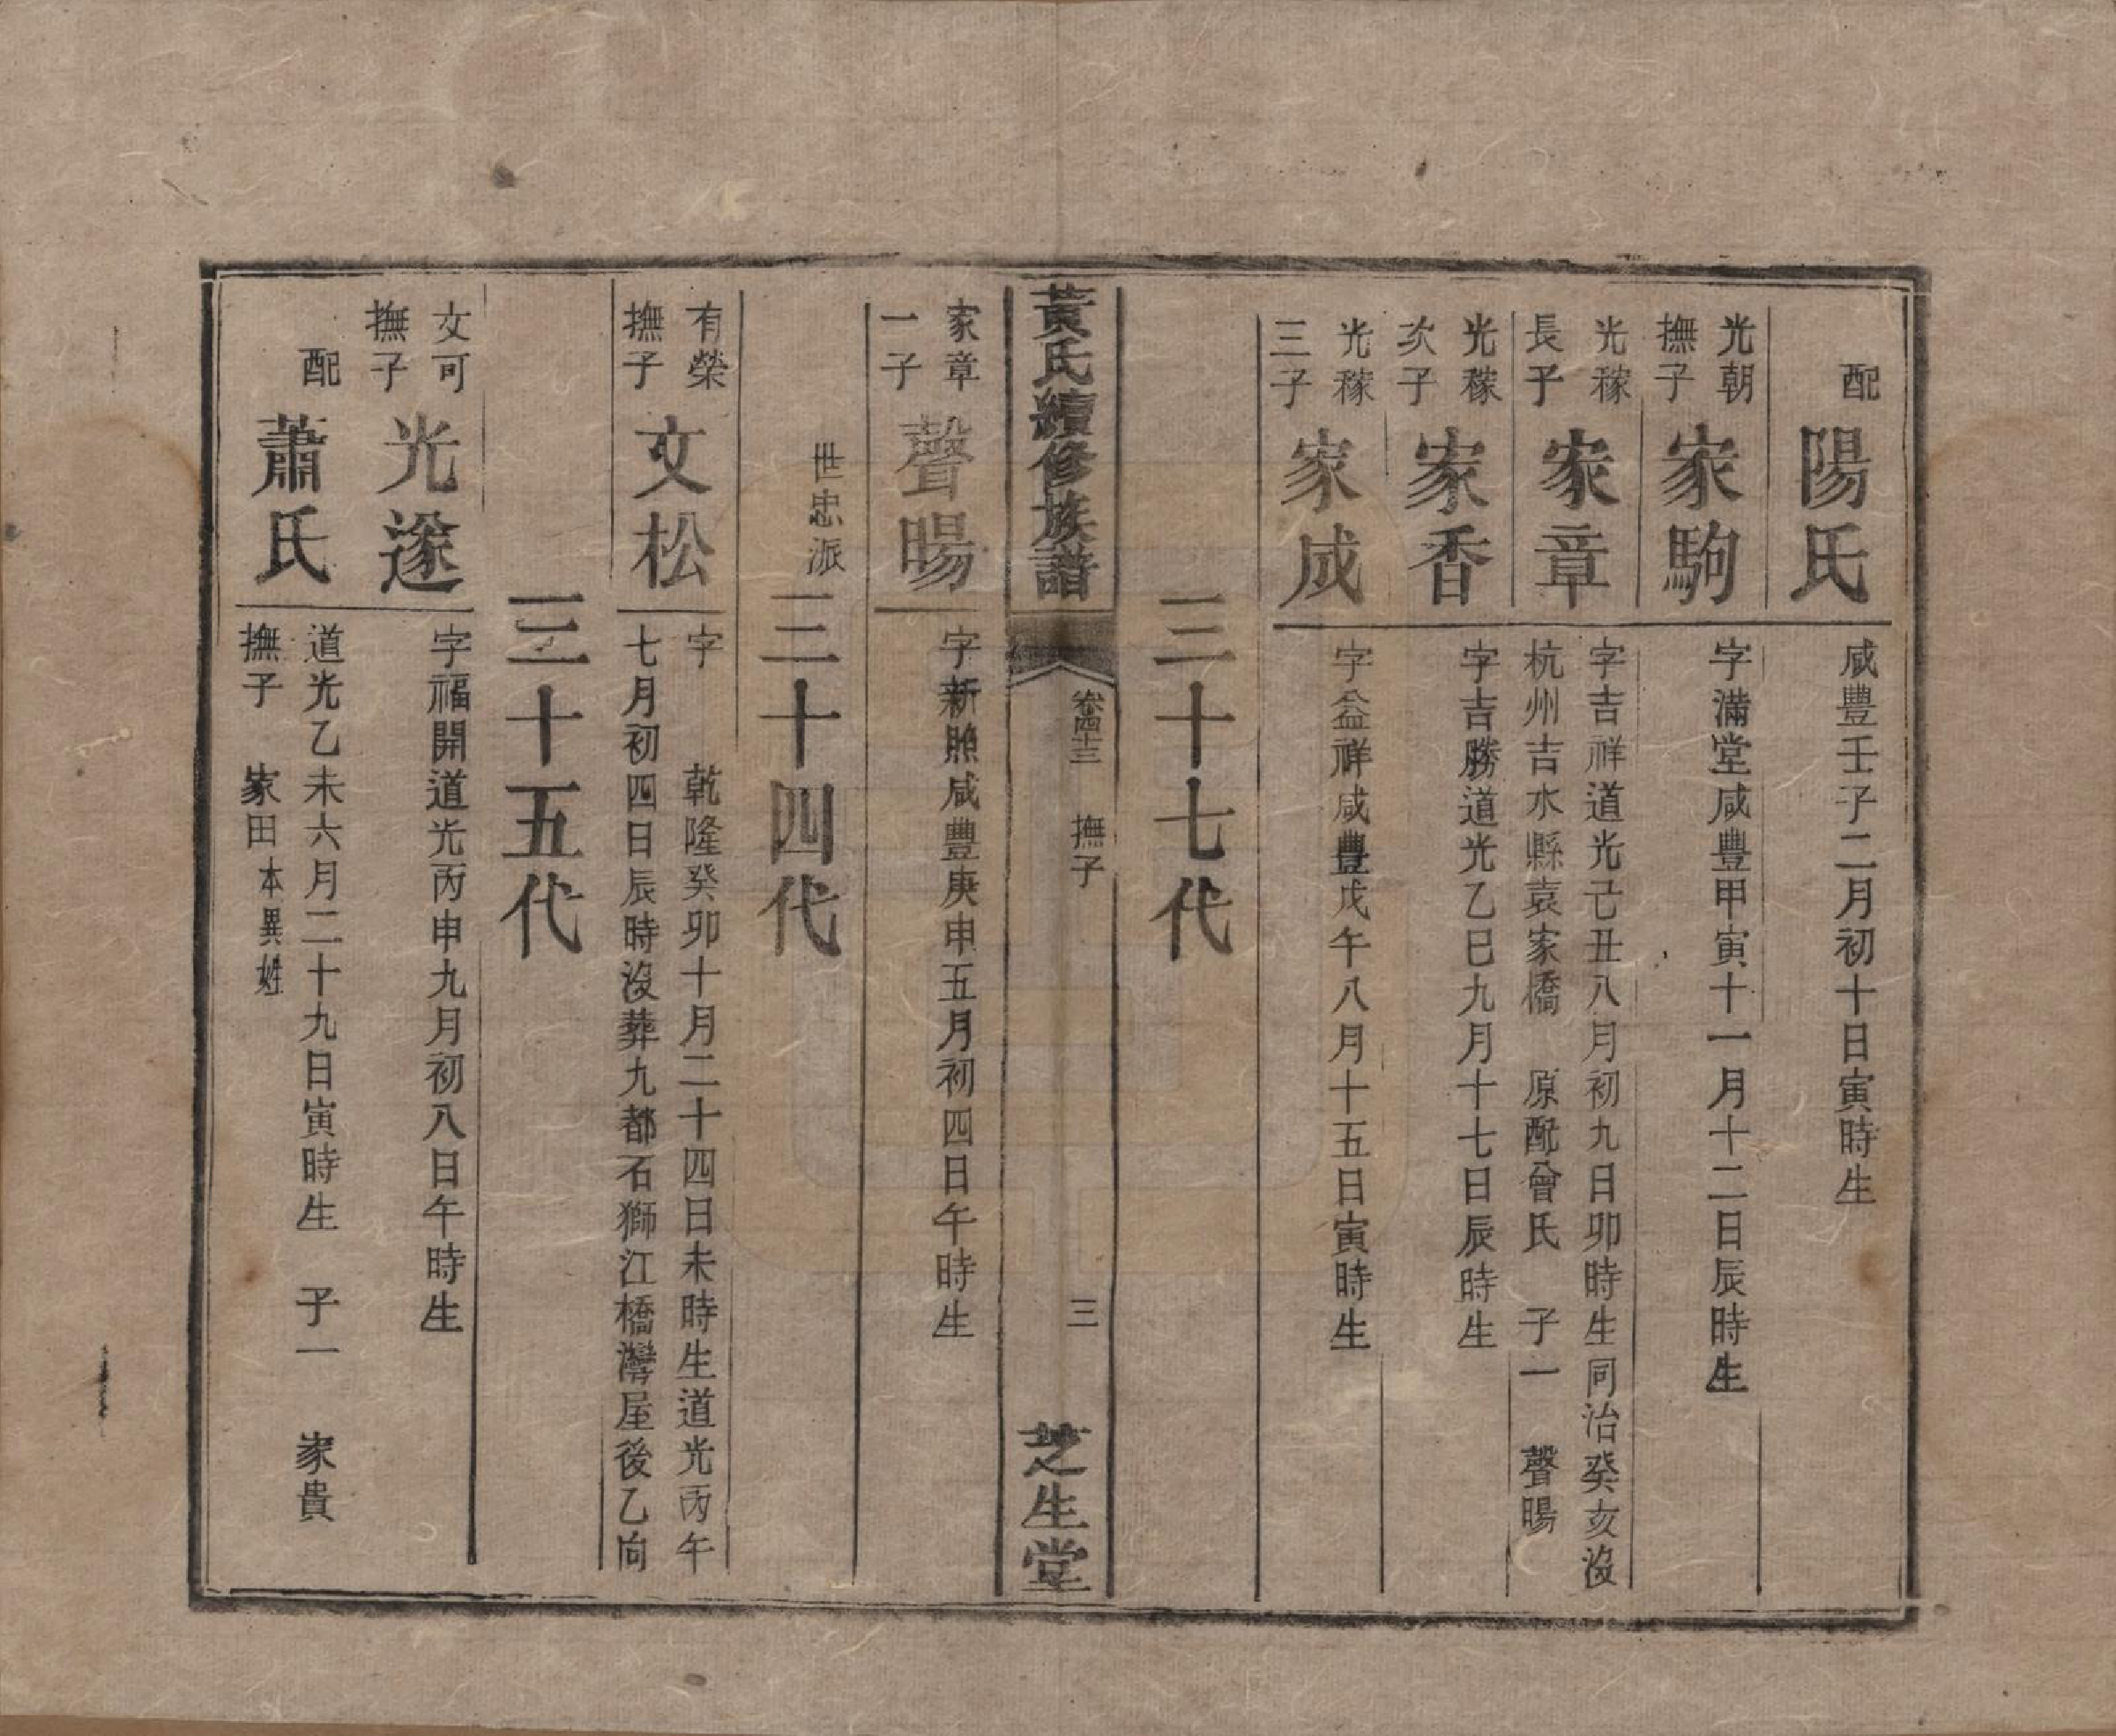 配
陽氏
咸豐壬子二月初十日寅時生
光朝
撫子
家駒
字滿堂咸豐甲寅十一月十二日辰時生
光稼
長子
家章
字吉祥道光己丑八月初九日卯時生同治癸亥沒
杭州吉水縣袁家橋　原配曾氏　子一　聲暘
光稼
次子
家香
字吉勝道光乙巳九月十七日辰時生
光稼
三子
家成
字益祥咸豐戊午八月十五日寅時生
三十七代
黃氏續修族譜
卷四十三　撫子
三
芝生堂
家章
一子
聲暘
字新照咸豐庚申五月初四日午時生
世忠派
三十四代
有榮
撫子
文松
字　乾隆癸卯十月二十四日未時生道光丙午
七月初四日辰時沒葬九都石獅江橋灣屋後乙向
三十五代
文可
撫子
光遂
字福開道光丙申九月初八日午時生
配
蕭氏
道光乙未六月二十九日寅時生　子一　家貴
撫子　家田本異姓